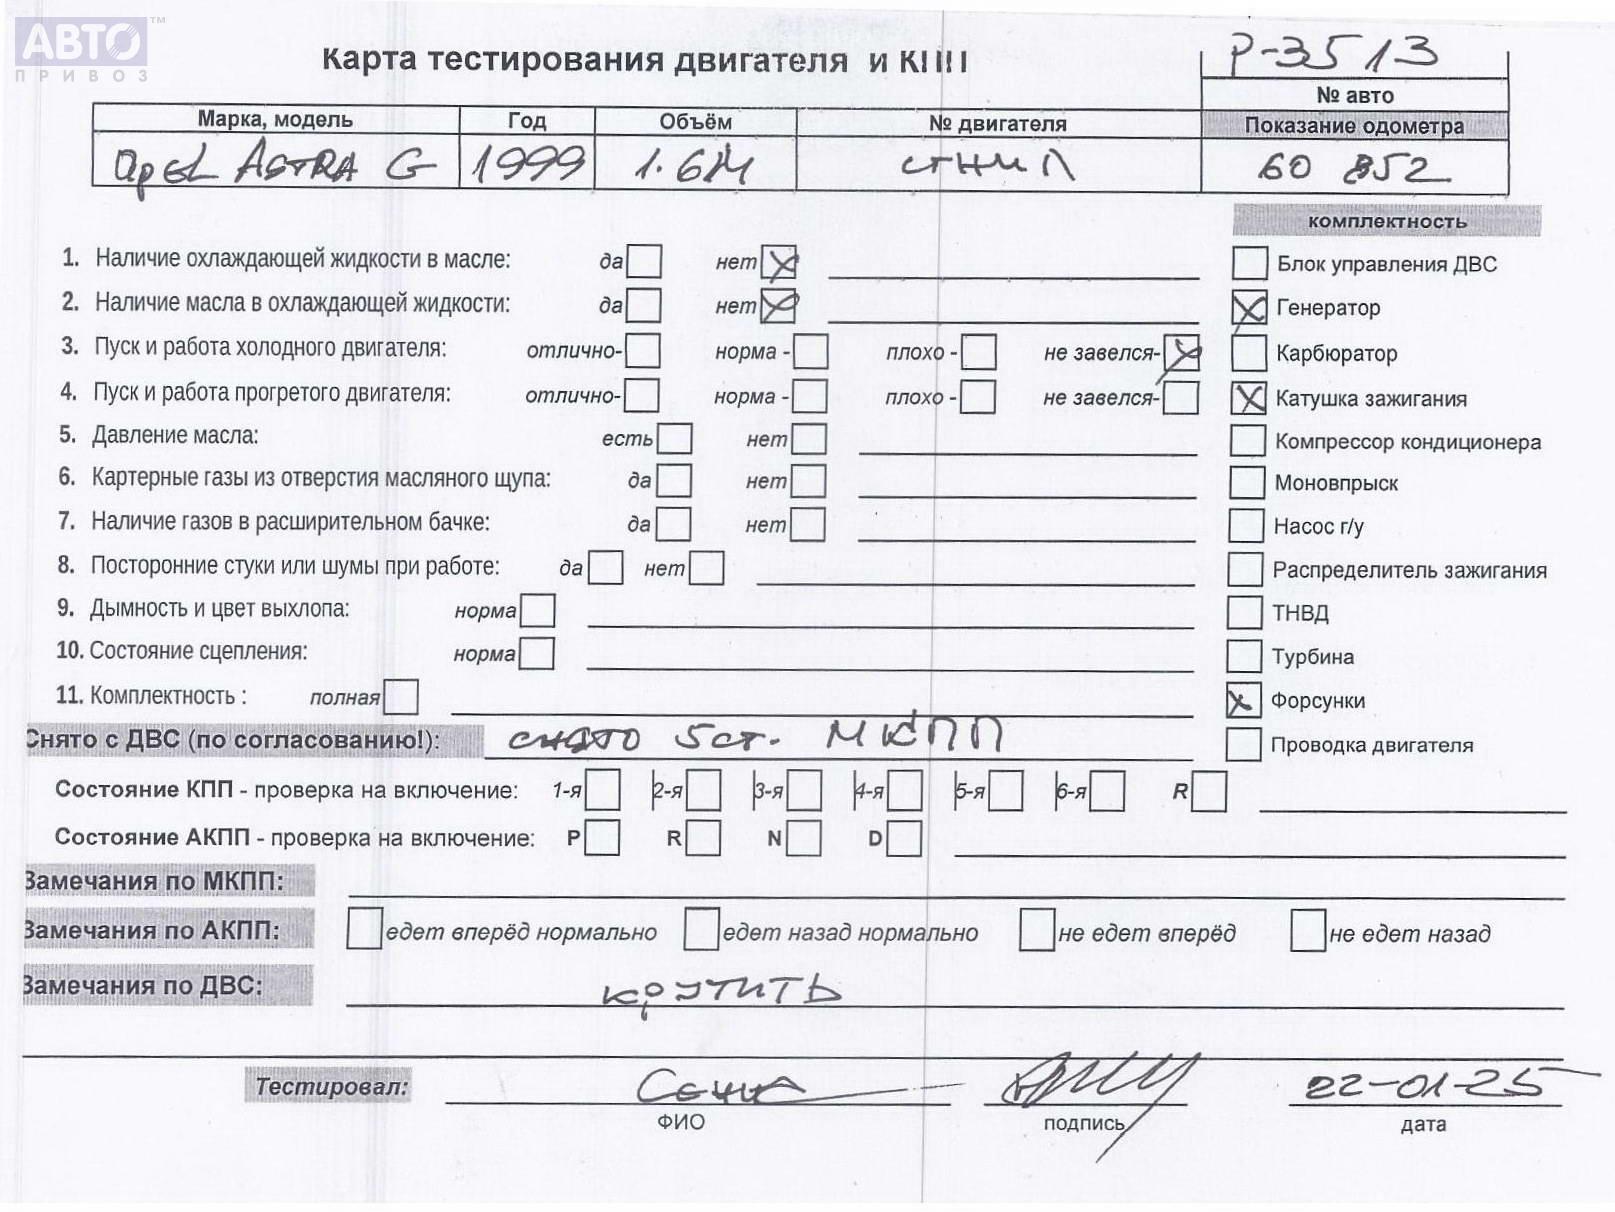 АВТО™
ПРИВОЗ
Карта тестирования двигателя и КПП
Р-3513
№ авто
Марка, модель Год Объём № двигателя Показание одометра
Opel Astra G 1999 1.6И 60 852
комплектность
1. Наличие охлаждающей жидкости в масле: да нет
Блок управления ДВС
2. Наличие масла в охлаждающей жидкости: да нет
Генератор
3. Пуск и работа холодного двигателя: отлично- норма - плохо - не завелся-
Карбюратор
4. Пуск и работа прогретого двигателя: отлично- норма - плохо - не завелся-
Катушка зажигания
5. Давление масла: есть нет
Компрессор кондиционера
6. Картерные газы из отверстия масляного щупа: да нет
Моновпрыск
7. Наличие газов в расширительном бачке: да нет
Насос г/у
8. Посторонние стуки или шумы при работе: да нет
Распределитель зажигания
9. Дымность и цвет выхлопа: норма
ТНВД
10. Состояние сцепления: норма
Турбина
11. Комплектность : полная
Форсунки
Снято с ДВС (по согласованию!): снято 5ст. МКПП
Проводка двигателя
Состояние КПП - проверка на включение: 1-я 2-я 3-я 4-я 5-я 6-я R
Состояние АКПП - проверка на включение: P R N D
Замечания по МКПП:
Замечания по АКПП: едет вперёд нормально едет назад нормально не едет вперёд не едет назад
Замечания по ДВС: крутить
Тестировал: 22-01-25
ФИО подпись дата